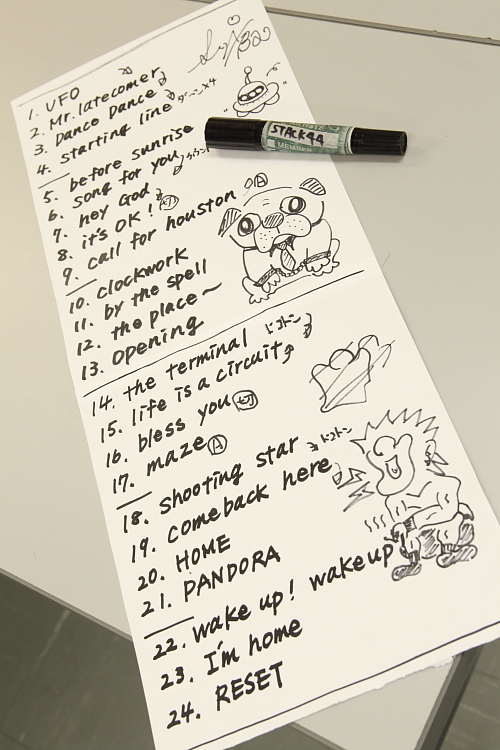 1. UFO
2. Mr. latecomer
3. Dance Dance
4. starting line
5. before sunrise
6. song for you
7. hey God
8. it's OK!
9. call for houston Ⓐ
10. clockwork
11. by the spell
12. the place~
13. opening
14. the terminal
15. life is a circuit
16. bless you
17. maze Ⓐ
18. shooting star
19. comeback here
20. HOME
21. PANDORA
22. wake up! wake up
23. I'm home
24. RESET
STACK44
MEMBER